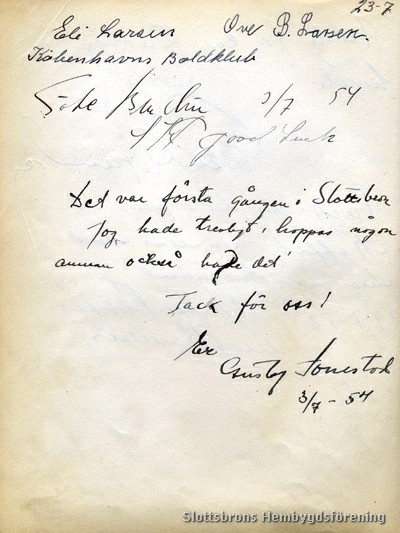 23-7
Eli Larsen Over B. Larsen.
Københavns Boldklub
3/7 54
good luck
Det var första gången i Slottsbron
Jag hade trevligt, hoppas någon
annan också hade det!
Tack för oss!
Er
Gösta
3/7 - 54
Slottsbrons Hembygdsförening